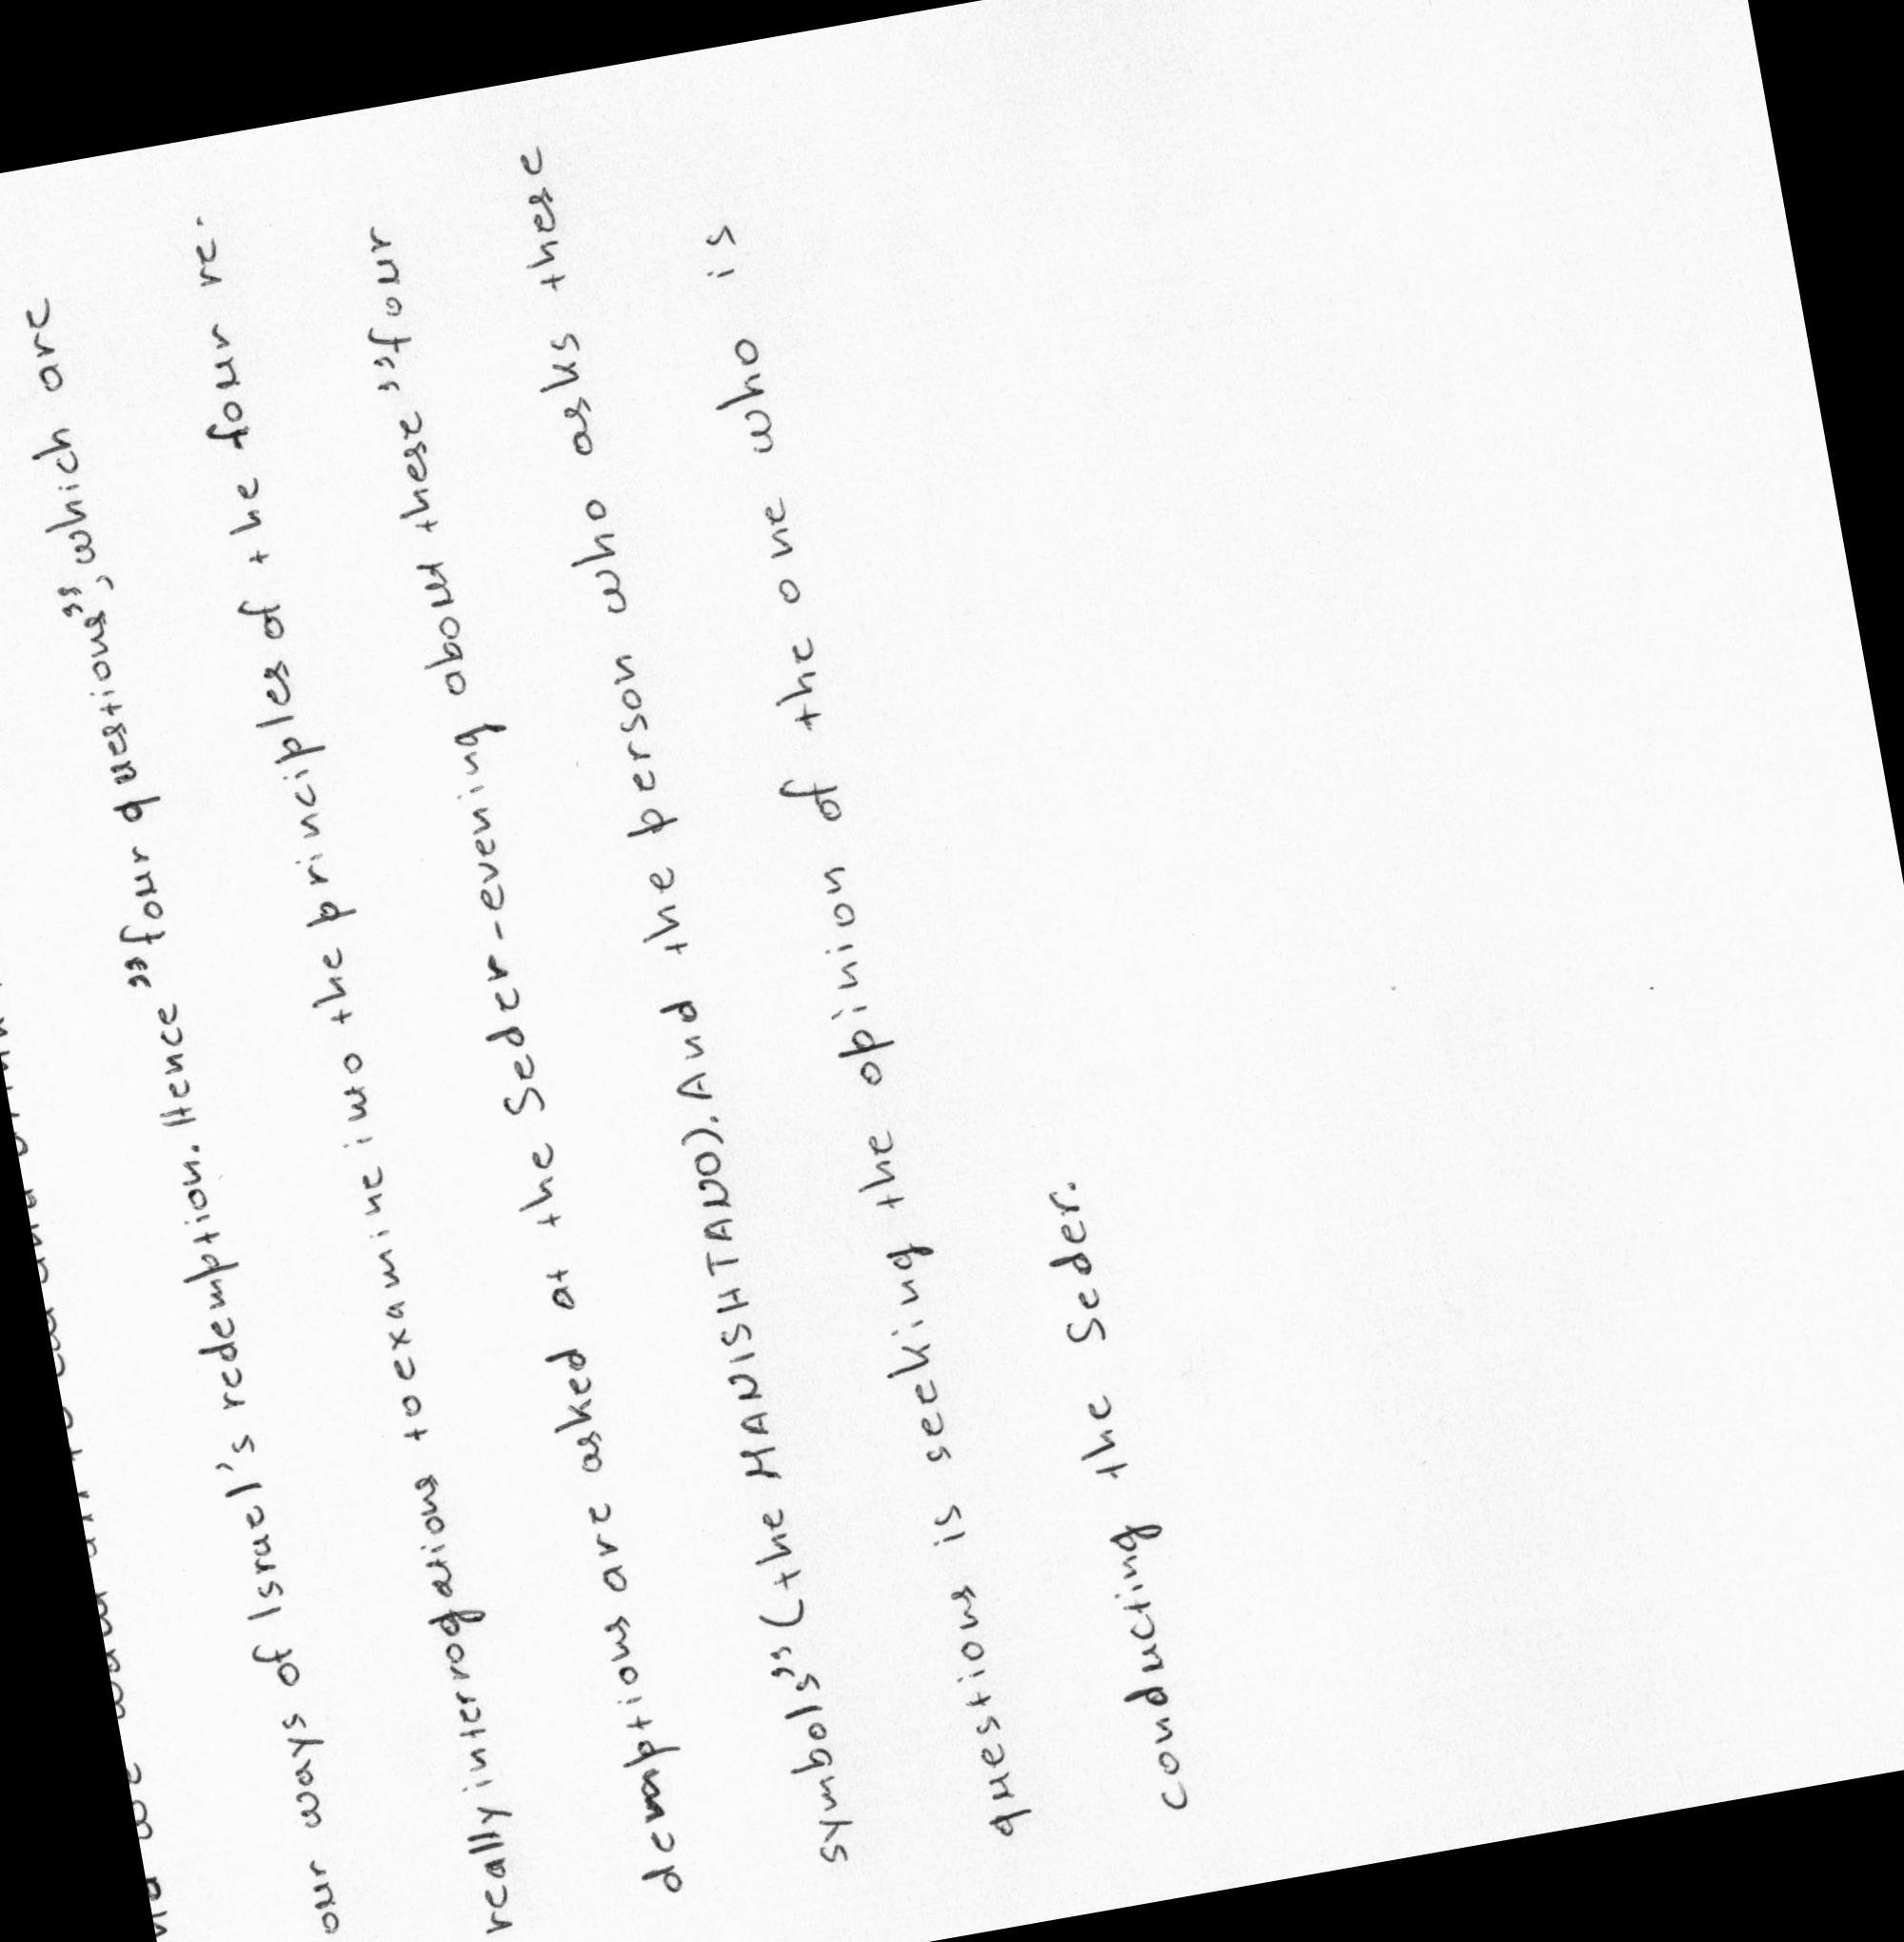 our ways of Israel's redemption. Hence "four questions", which are
really interrogations to examine into the principles of the four re-
demptions are asked at the Seder-evening about these "four
symbols" (the MANISHTANO). And the person who asks these
questions is seeking the opinion of the one who is
conducting the Seder.